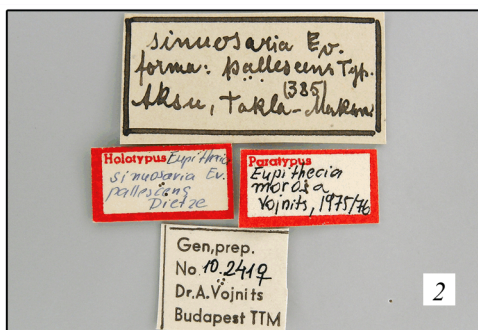 sinuosaria Ev.
forma: pallescens Typ.
(385)
Aksu, Takla-Makan
Holotypus Eupithecia
sinuosaria Ev.
pallescens
Dietze
Paratypus
Eupithecia
morosa
Vojnits, 1975/76
Gen,prep.
No. 10.2419
Dr.A.Vojnits
Budapest TTM
2